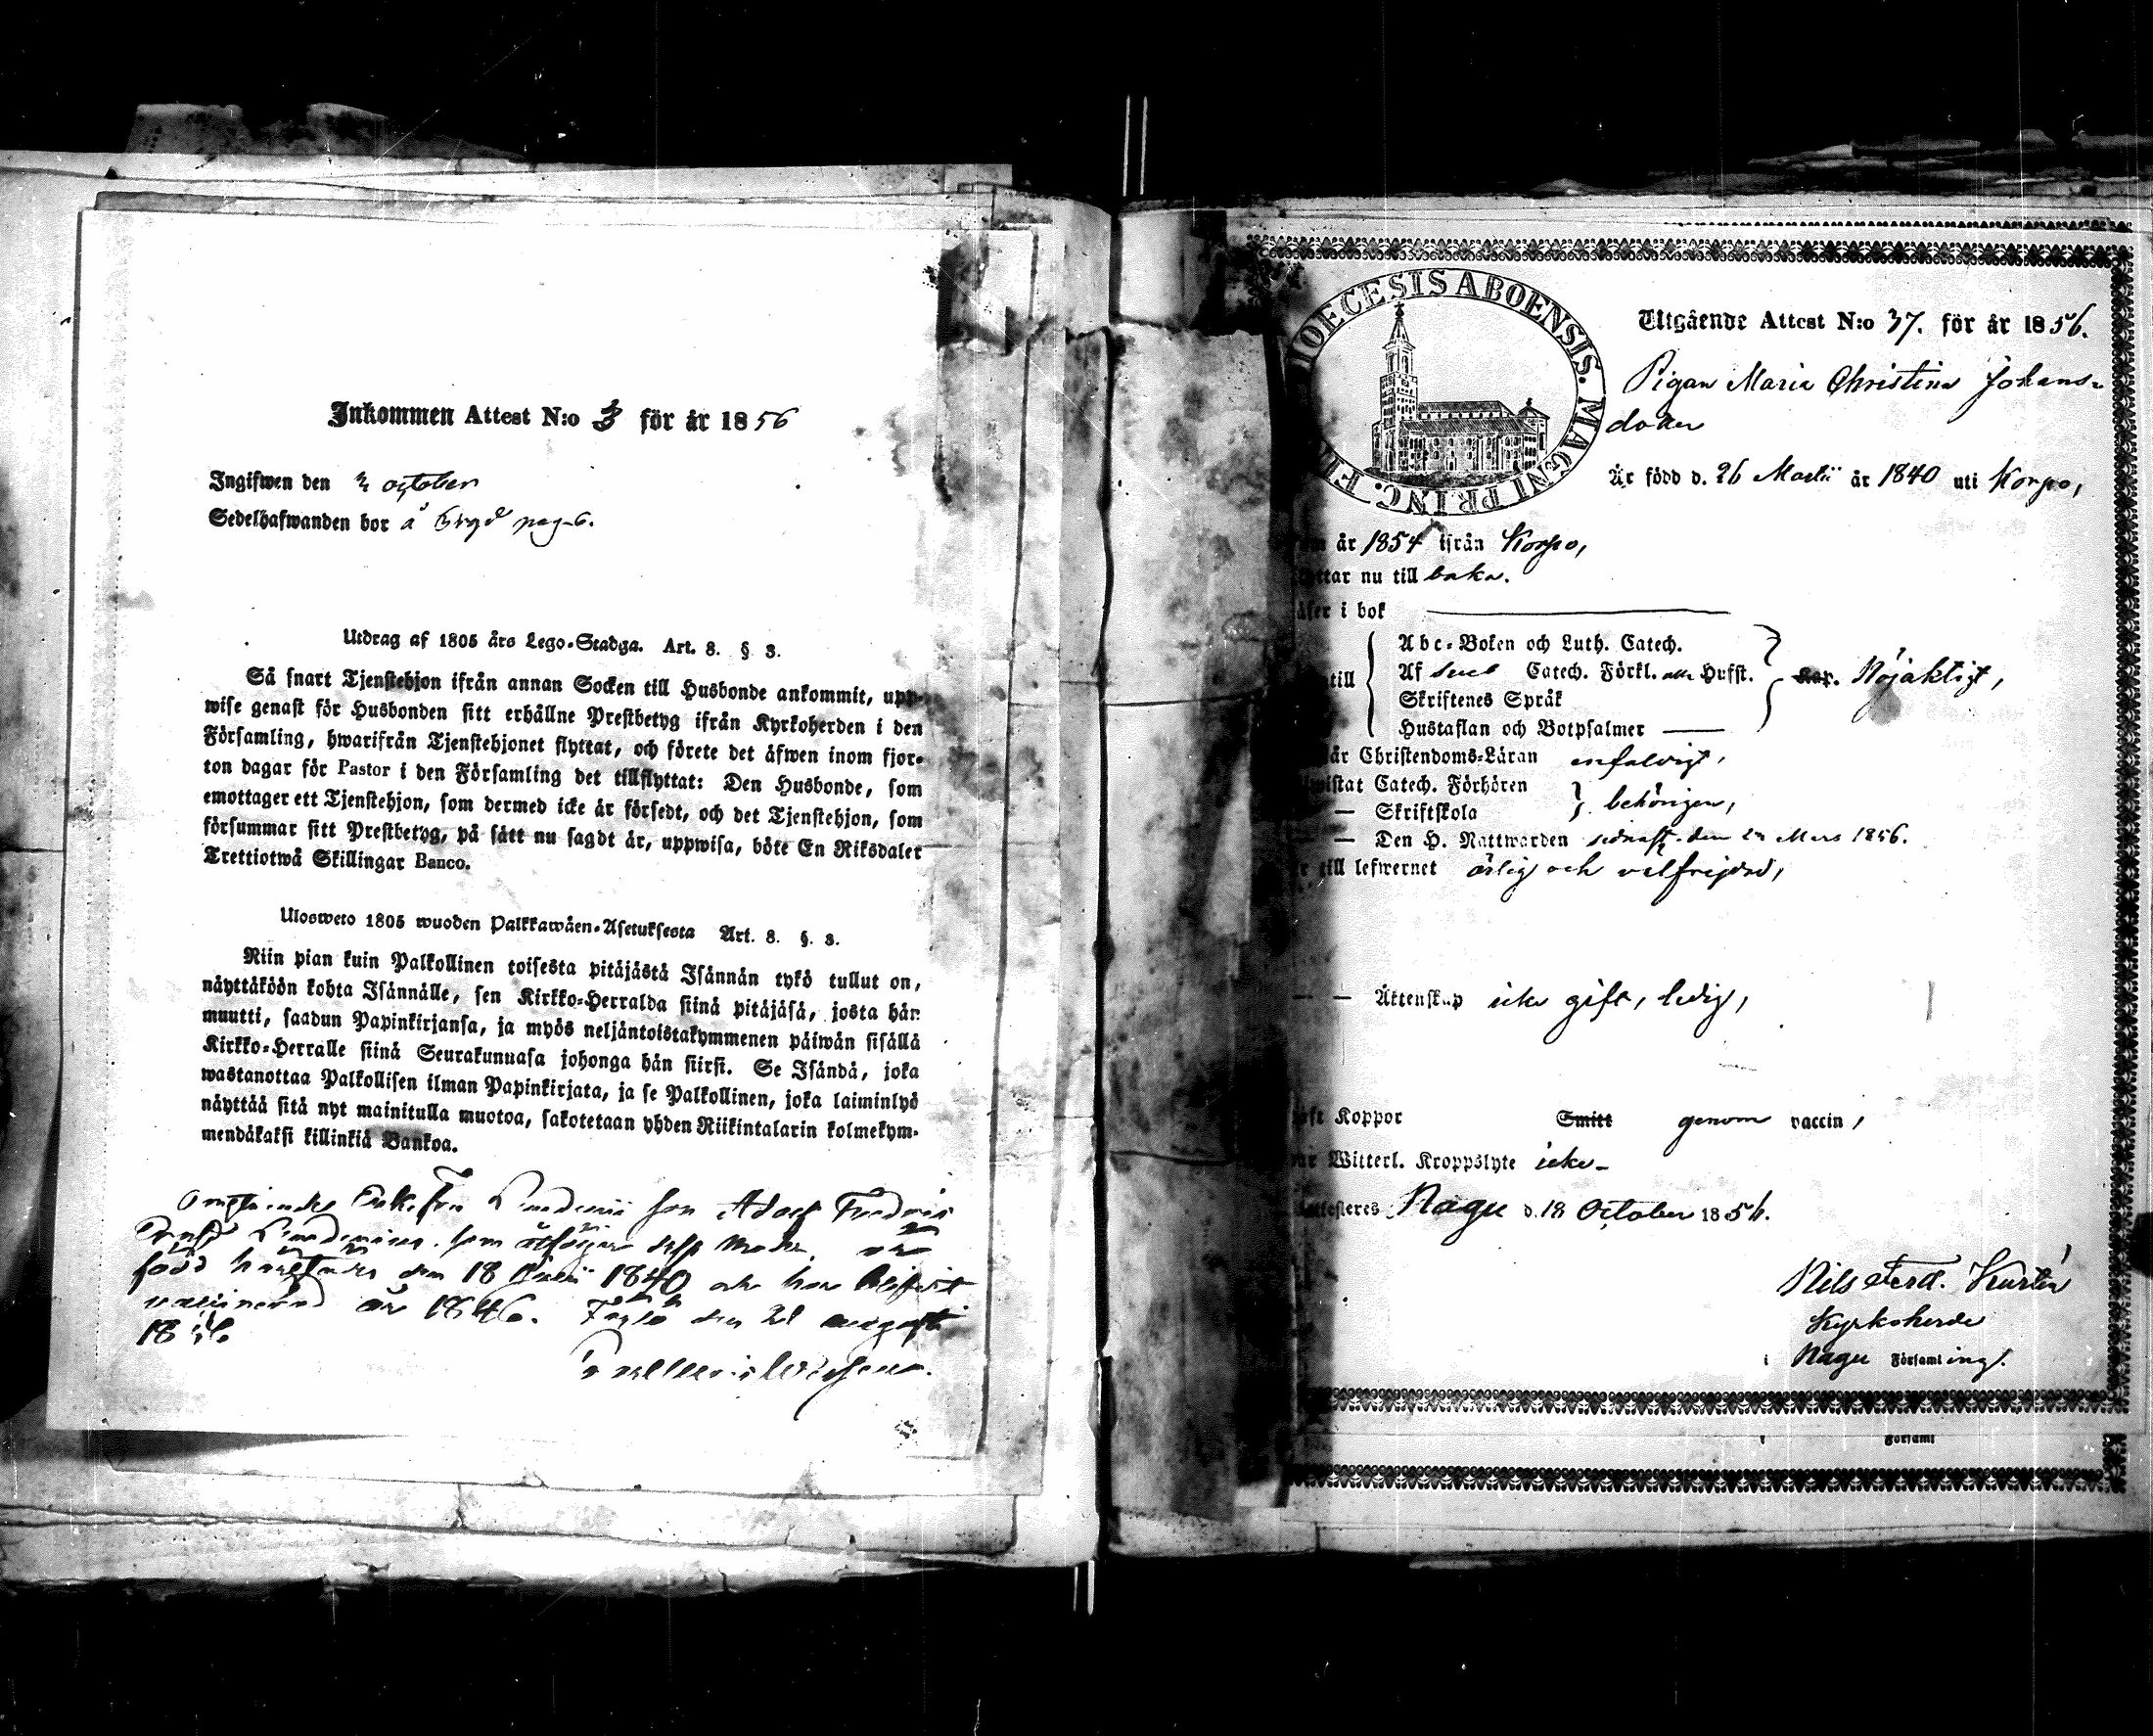 Inkommen Attest N:o 3 för år 1856
Ingifwen den 3/4 october
Sedelhafwanden bor å pag 6.
Utdrag af 1805 års Lego-Stadga. Art. 8. § 3.
Så snart Tjenstehjon ifrån annan Socken till Husbonde ankommit, upp-
wise genast för Husbonden sitt erhållne Prestbetyg ifrån Kyrkoherden i den
Församling, hwarifrån Tjenstehjonet flyttat, och förete det äfwen inom fjor-
ton dagar för Pastor i den Församling det tillflyttat: Den Husbonde, som
emottager ett Tjenstehjon, som dermed icke är försedt, och det Tjenstehjon, som
försummar sitt Prestbetyg, på sätt nu sagdt är, uppwisa, böte En Riksdaler
Trettiotwå Skillingar Banco.
Ulosweto 1805 wuoden Palkkawäen-Asetuksesta Art. 8. §. 3.
Niin pian kuin Palkollinen toisesta pitäjästä Isännän tykö tullut on,
näyttäköön kohta Isännälle, sen Kirkko-Herralda siinä pitäjäsä, josta hän
muutti, saadun Papinkirjansa, ja myös neljäntoistakymmenen päiwän sisällä
Kirkko-Herralle siinä Seurakunnasa johonga hän siirsi. Se Isändä, joka
wastanottaa Palkollisen ilman Papinkirjata, ja se Palkollinen, joka laiminlyö
näyttää sitä nyt mainitulla muotoa, sakotetaan yhden Riikintalarin kolmekym-
mendäkaksi killinkiä Bankoa.
Enkefru son Adolf Fredric
som åtföljer dess moder, är
född den 18 1840 och har blifvit
vaccinerad år 1846. den 21 augusti
1856
DIOECESIS ABOENSIS. MAGNI PRINC. FIN
Utgående Attest N:o 37. för år 1856.
Pigan Maria Christina Johans-
doter
Är född d. 26 Martii år 1840 uti Korpo,
om år 1854 ifrån Korpo,
yttar nu till baka.
äser i bok
Abc-Boken och Luth. Catech.
till Af Sveb Catech. Förkl. alla Hufst. Kap. Nöjaktigt,
Skriftenes Språk
Hustaflan och Botpsalmer
år Christendoms-Läran enfaldigt,
wistat Catech. Förhören
— Skriftskola behörigen,
— — Den H. Nattwarden sednast den 24 Mars 1856.
r till lefwernet ärlig och välfrejdad,
— — Äktenskap icke gift, ledig,
aft Koppor Smitt genom vaccin,
ar Witterl. Kroppslyte icke-
Attesteres Nagu d. 18 October 1856.
Nils Ferd.
Kyrkoherde
i Nagu Församling.
i Församl